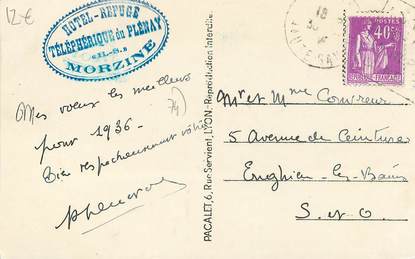 12€
HOTEL-REFUGE
TÉLÉPHÉRIQUE DU PLÉNAY
(H.-S.)
MORZINE
18
POSTES
40c
RÉPUBLIQUE FRANÇAISE
Mes voeux les meilleurs
pour 1936.
Bien respectueusement vôtre
74)
PACALET, 6, Rue Servient, LYON.-Reproduction Interdite.
Mr et Mme Couvreur
5 Avenue de Ceinture
Enghien-les-Bains
S-et-O.